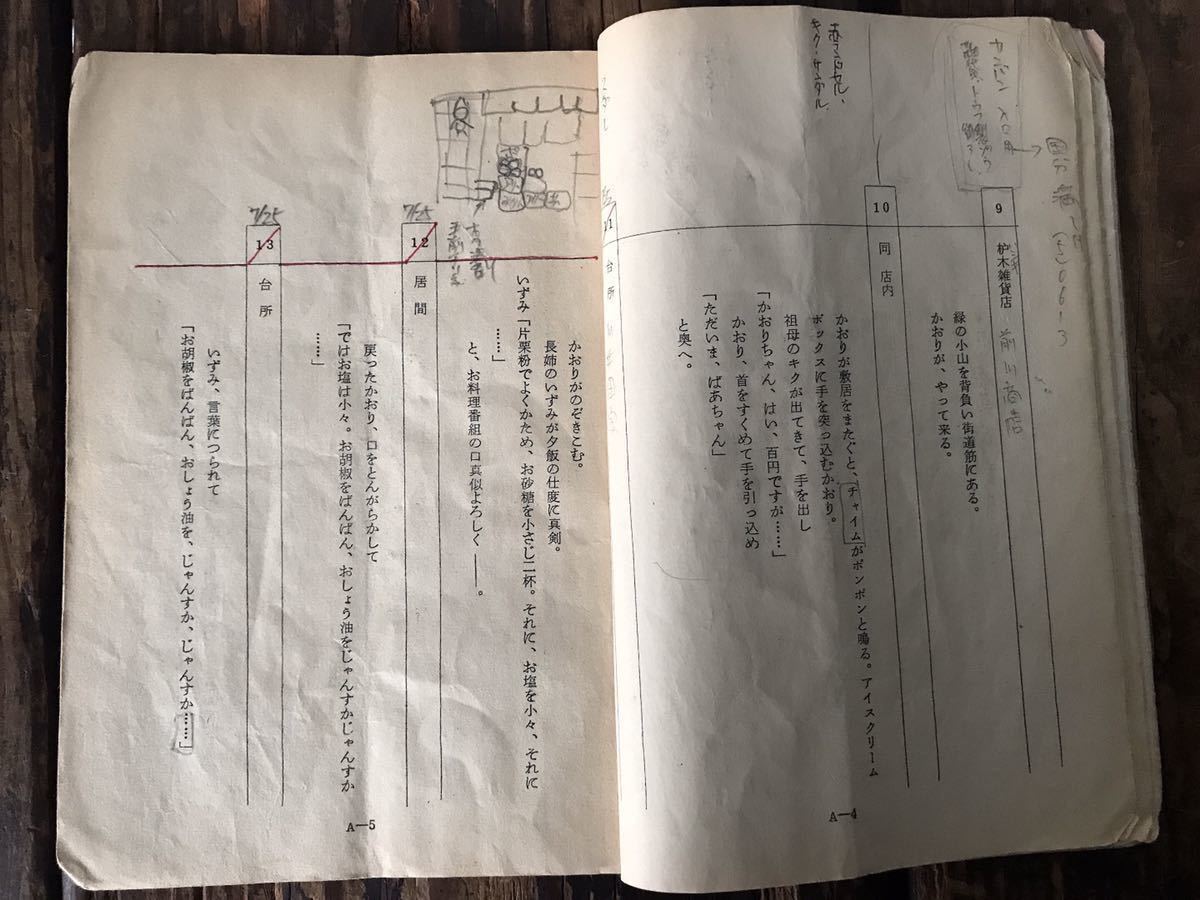 9 枦木雑貨店 前川商店
緑の小山を背負い街道筋にある。
かおりが、やって来る。
10 同 店内
かおりが敷居をまたぐと、チャイムがポンポンと鳴る。アイスクリーム
ボックスに手を突っ込むかおり。
祖母のキクが出てきて、手を出し
「かおりちゃん、はい、百円ですが……」
かおり、首をすくめて手を引っ込め
「ただいま、ばあちゃん」
と奥へ。
A—4
赤ランドセル、
キク・サンダル
カンバン 入口用
11 台所
かおりがのぞきこむ。
長姉のいずみが夕飯の仕度に真剣。
いずみ「片栗粉でよくかため、お砂糖を小さじ二杯。それに、お塩を小々、それに
……」
と、お料理番組の口真似よろしく——。
7/25
12 居間
戻ったかおり、口をとんがらかして
「でけお塩は小々。お胡椒をぱんぱん、おしょう油をじゃんすかじゃんすか
……」
7/25
13 台所
いずみ、言葉につられて
「お胡椒をぱんぱん、おしょう油を、じゃんすか、じゃんすか……」
A—5